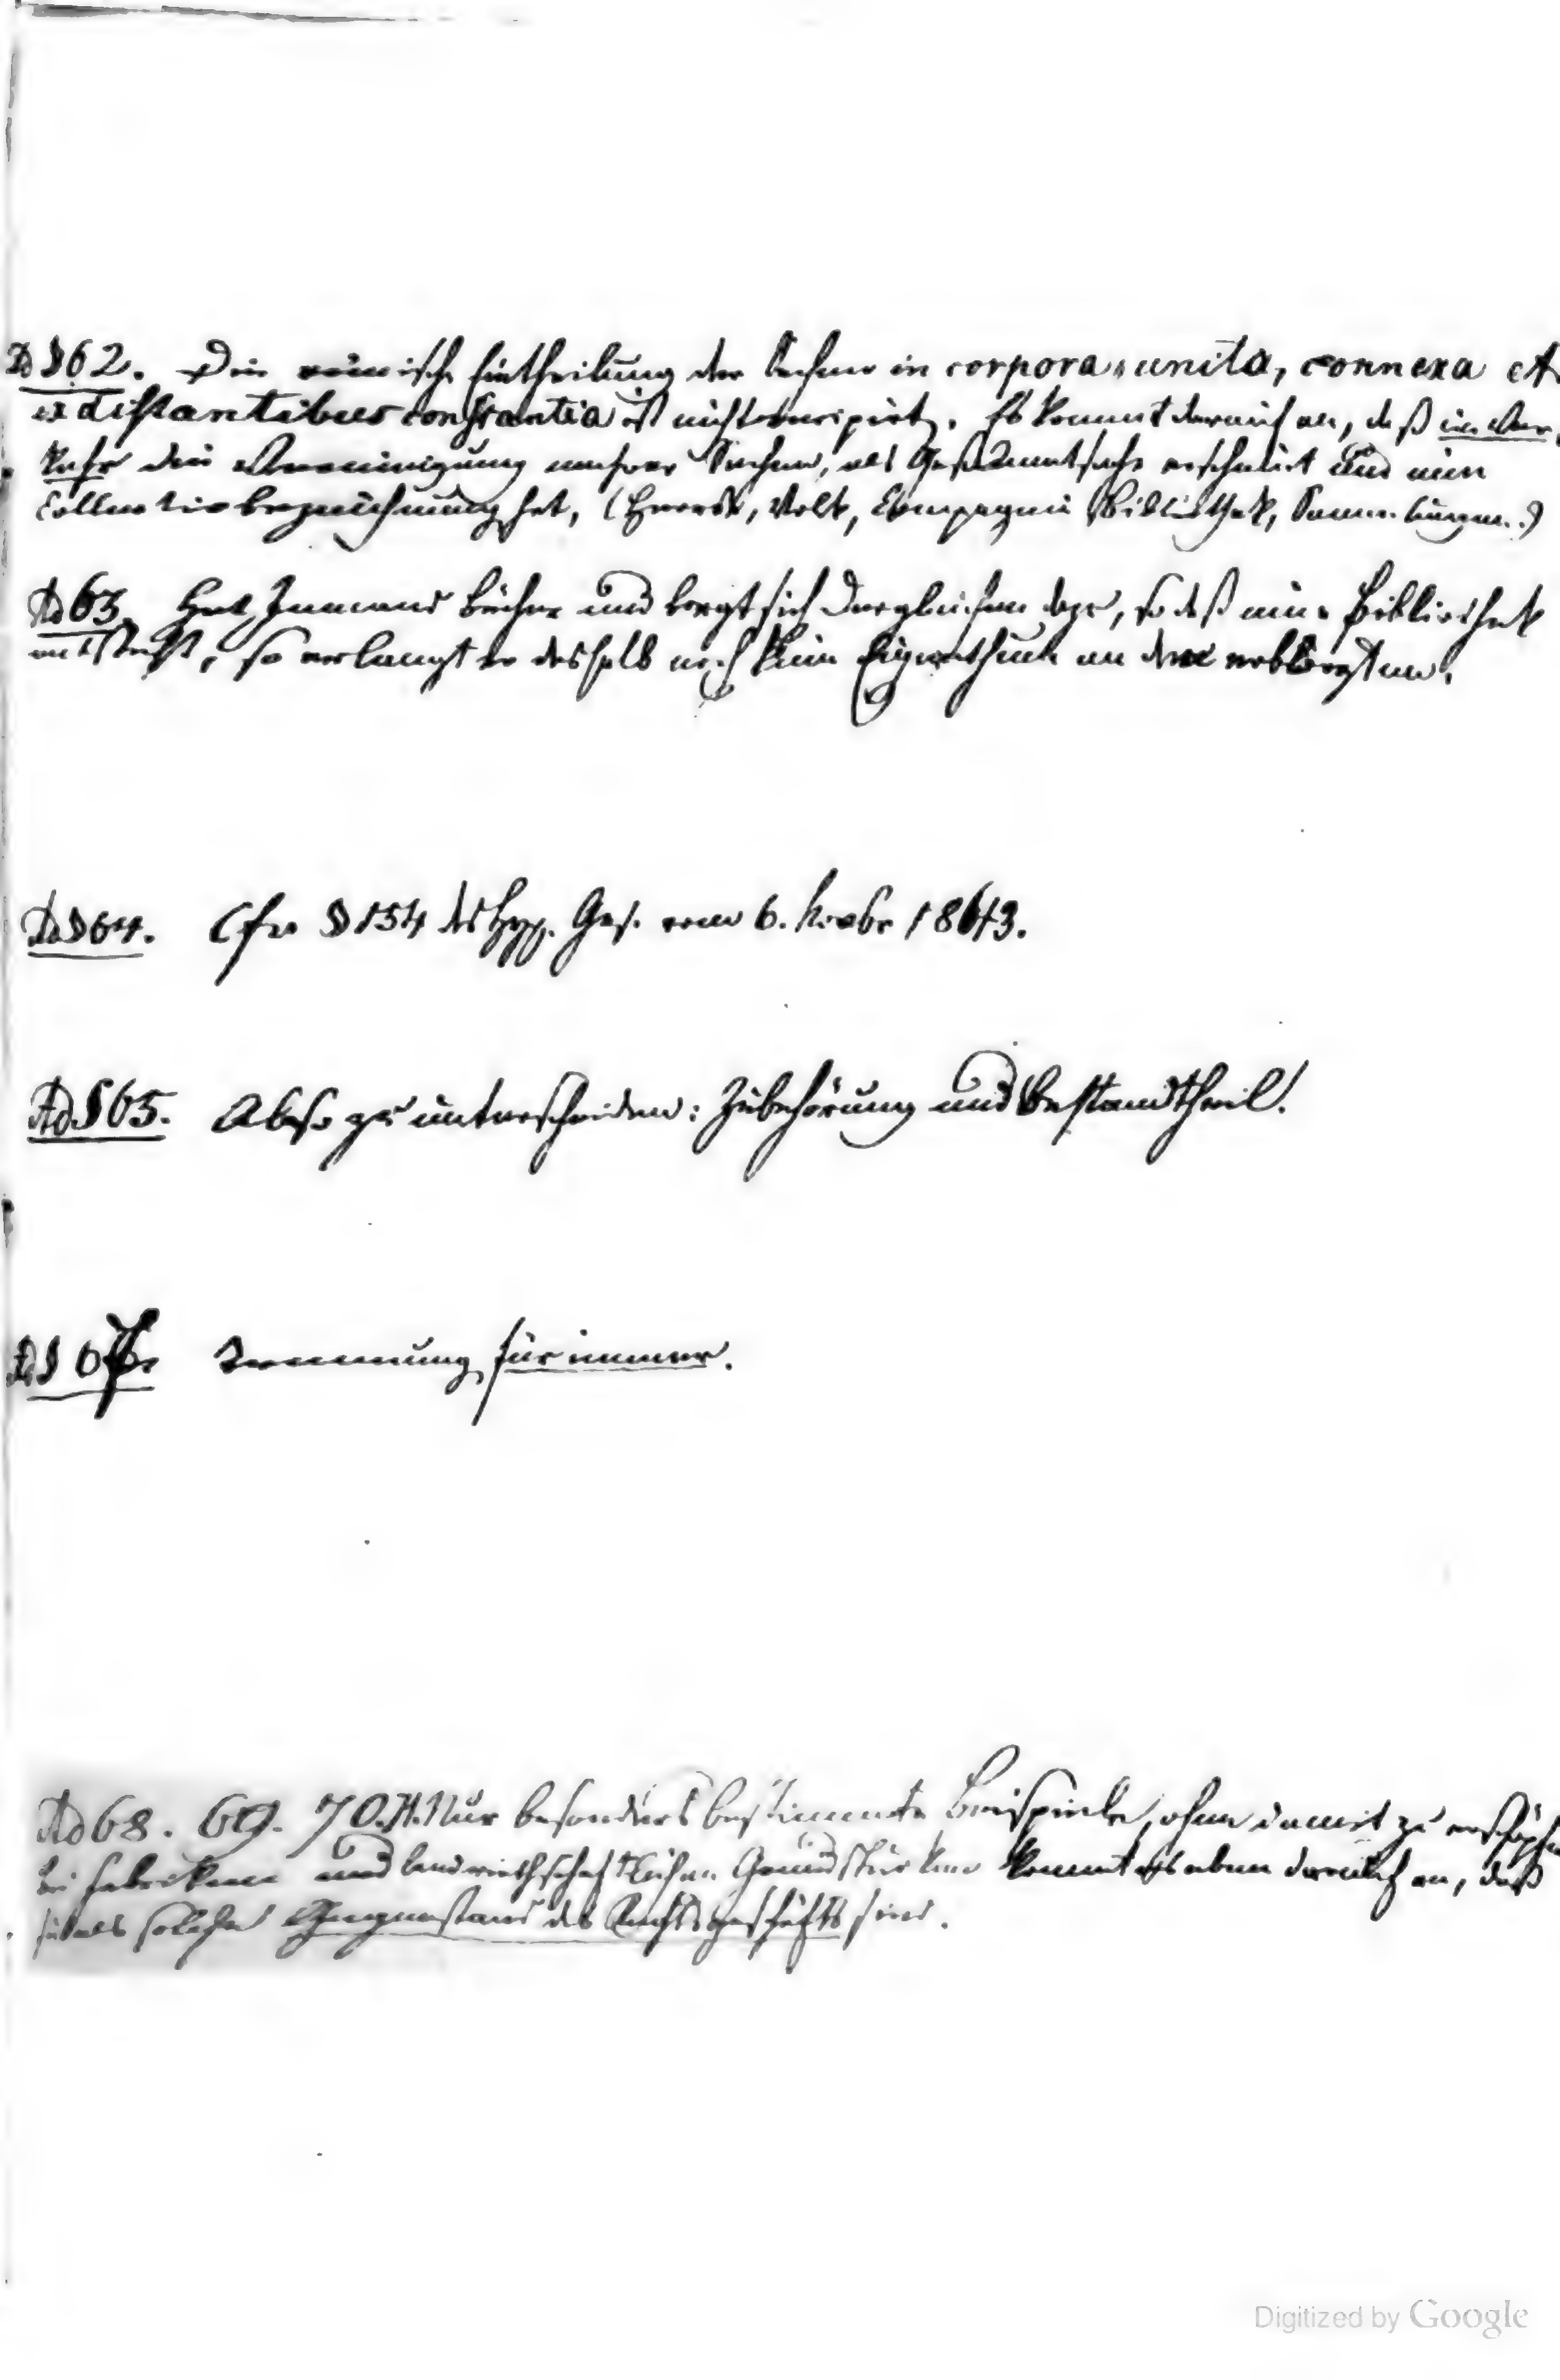 Ad § 62. Die römische Eintheilung der Sachen in corpora unita, connexa et
ex distantibus constantia ist nicht recipirt. Es kommt darauf an, daß im Ver-
kehr die Vereinigung mehrer Sachen, als Gesammtsache erscheint und eine
Collectivbezeichnung hat, (Heerde, Volk, Compagnie Bibliothek, Sammlungen.)
Ad 63. Hat Jemand Bücher und borgt sich dergleichen dazu, so daß eine Bibliothek
entsteht, so erlangt er deshalb noch kein Eigenthum an den erborgten.
Ad § 64. Cfr § 154 des Hyp. Ges. vom 6. Novbr 1843.
Ad § 65. Also zu unterscheiden: Zubehörung und Bestandtheil!
Ad § 67. Trennung für immer.
Ad 68. 69. 70. Nur besonders bestimmte Beispiele, ohne damit zu erschöpfen
bei Fabriken und landwirthschaftlichen Grundstücken kommt es eben darauf an, daß
sie als solche Gegenstand des Rechtsgeschäfts sind.
Digitized by Google